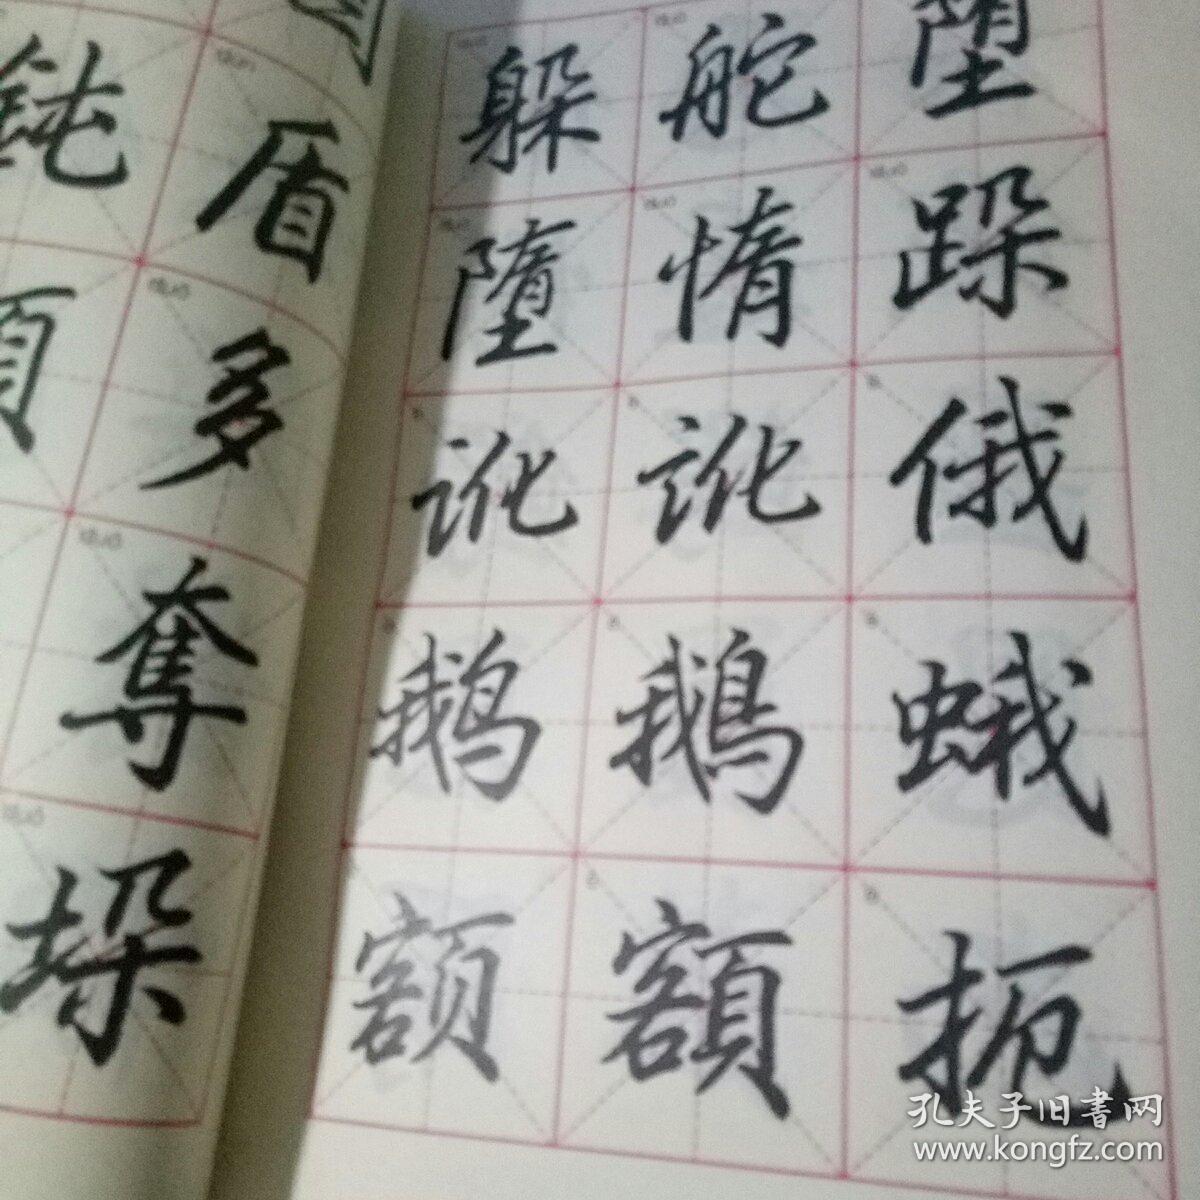 钝 盾
多
奪
垛
躲 舵 堕
墮 惰 跺
讹 訛 俄
鹅 鵝 蛾
额 額 扼
孔夫子旧書网
www.kongfz.com